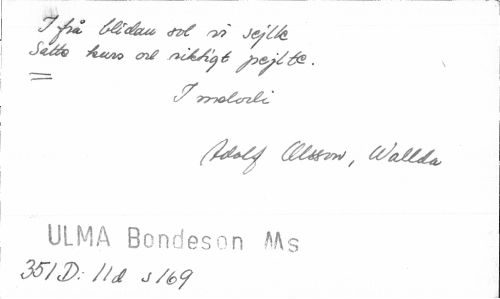 I frå blidan och vi sejlte
Satte kurs och riktigt pejlte.
I melodi
Adolf Olsson, Wallda
ULMA Bondeson Ms
351 D: 11d s 169